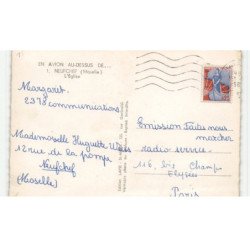 EN AVION AU-DESSUS DE...
1. NEUFCHEF (Moselle)
L'Église
Margaret.
2378 communications.
Mademoiselle Huguette
12 rue de la pompe
Neufchef
(Moselle)
Emission Faites nous
marcher
radio service
116, bis Champs
Elysées
Paris